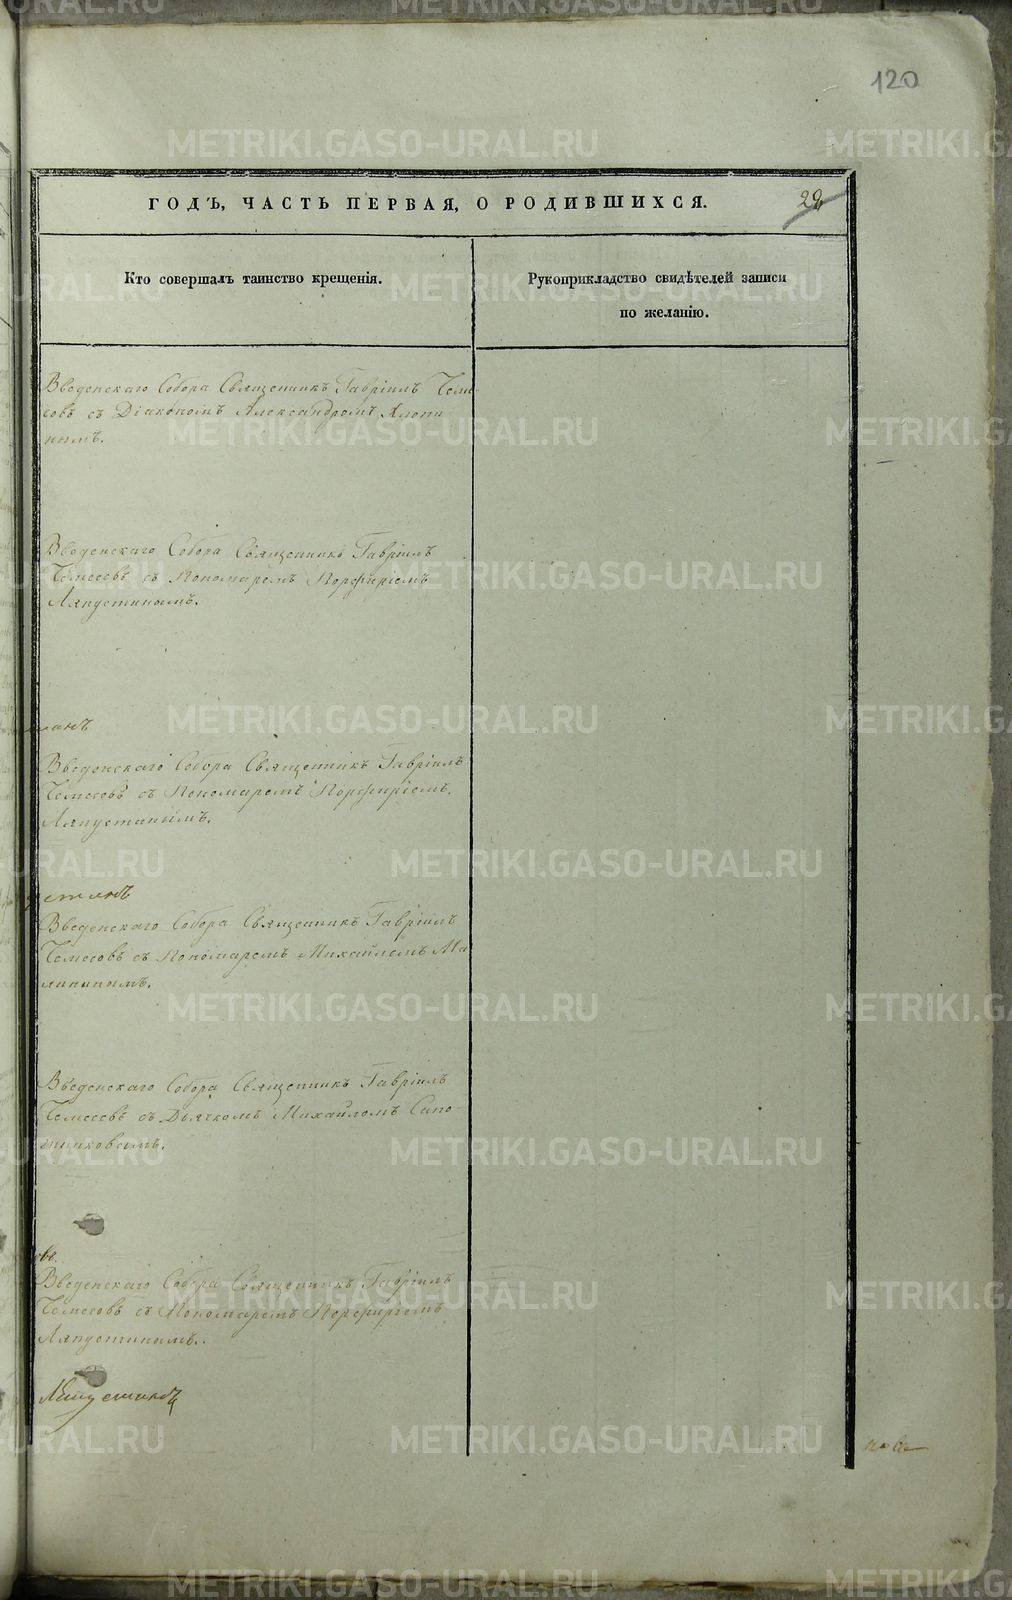 120
ГОДЪ, ЧАСТЬ ПЕРВАЯ, О РОДИВШИХСЯ.
Кто совершалъ таинство крещенія.
Рукоприкладство свидѣтелей записи
по желанію.
Введенскаго Собора Священникъ Гавріилъ Чеме
совъ съ Діакономъ Александромъ Хлопи
нымъ.
Введенскаго Собора Священникъ Гавріилъ
Чемесовъ съ Пономаремъ Порфиріемъ
Ляпустинымъ.
Введенскаго Собора Священникъ Гавріилъ
Чемесовъ съ Пономаремъ Порфиріемъ
Ляпустинымъ.
Введенскаго Собора Священникъ Гавріилъ
Чемесовъ съ Пономаремъ Михайломъ Ма
лининымъ.
Введенскаго Собора Священникъ Гавріилъ
Чемесовъ съ Дьячкомъ Михайломъ Сапо-
жниковымъ.
Введенскаго Собора Священникъ Гавріилъ
Чемесовъ съ Пономаремъ Порфиріемъ
Ляпустинымъ.
METRIKI.GASO-URAL.RU